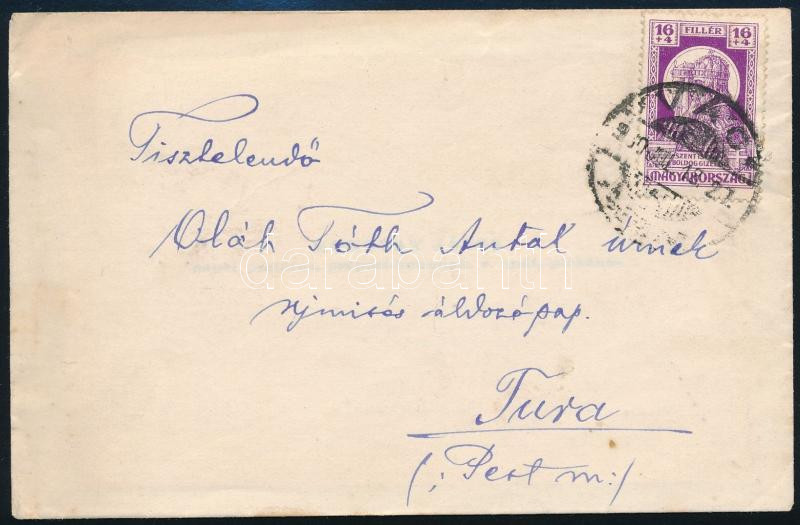 16 FILLÉR 16
+4 +4
VÁC
SZENT
BOLDOG GIZEL
MAGYARORSZÁG
Tisztelendő
Oláh Tóth Antal urnak
ujmisés áldozópap.
Tura
(: Pest m :)
darabanth